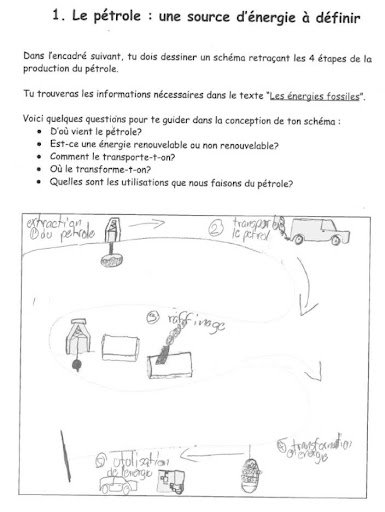 1. Le pétrole : une source d'énergie à définir
Dans l'encadré suivant, tu dois dessiner un schéma retraçant les 4 étapes de la
production du pétrole.
Tu trouveras les informations nécessaires dans le texte "Les énergies fossiles".
Voici quelques questions pour te guider dans la conception de ton schéma :
• D'où vient le pétrole?
• Est-ce une énergie renouvelable ou non renouvelable?
• Comment le transporte-t-on?
• Où le transforme-t-on?
• Quelles sont les utilisations que nous faisons du pétrole?
extraction
① du pétrole
② transporte
le petrol
③ raffinage
④ transformation
en energie
⑤ utulisation
de l'energie